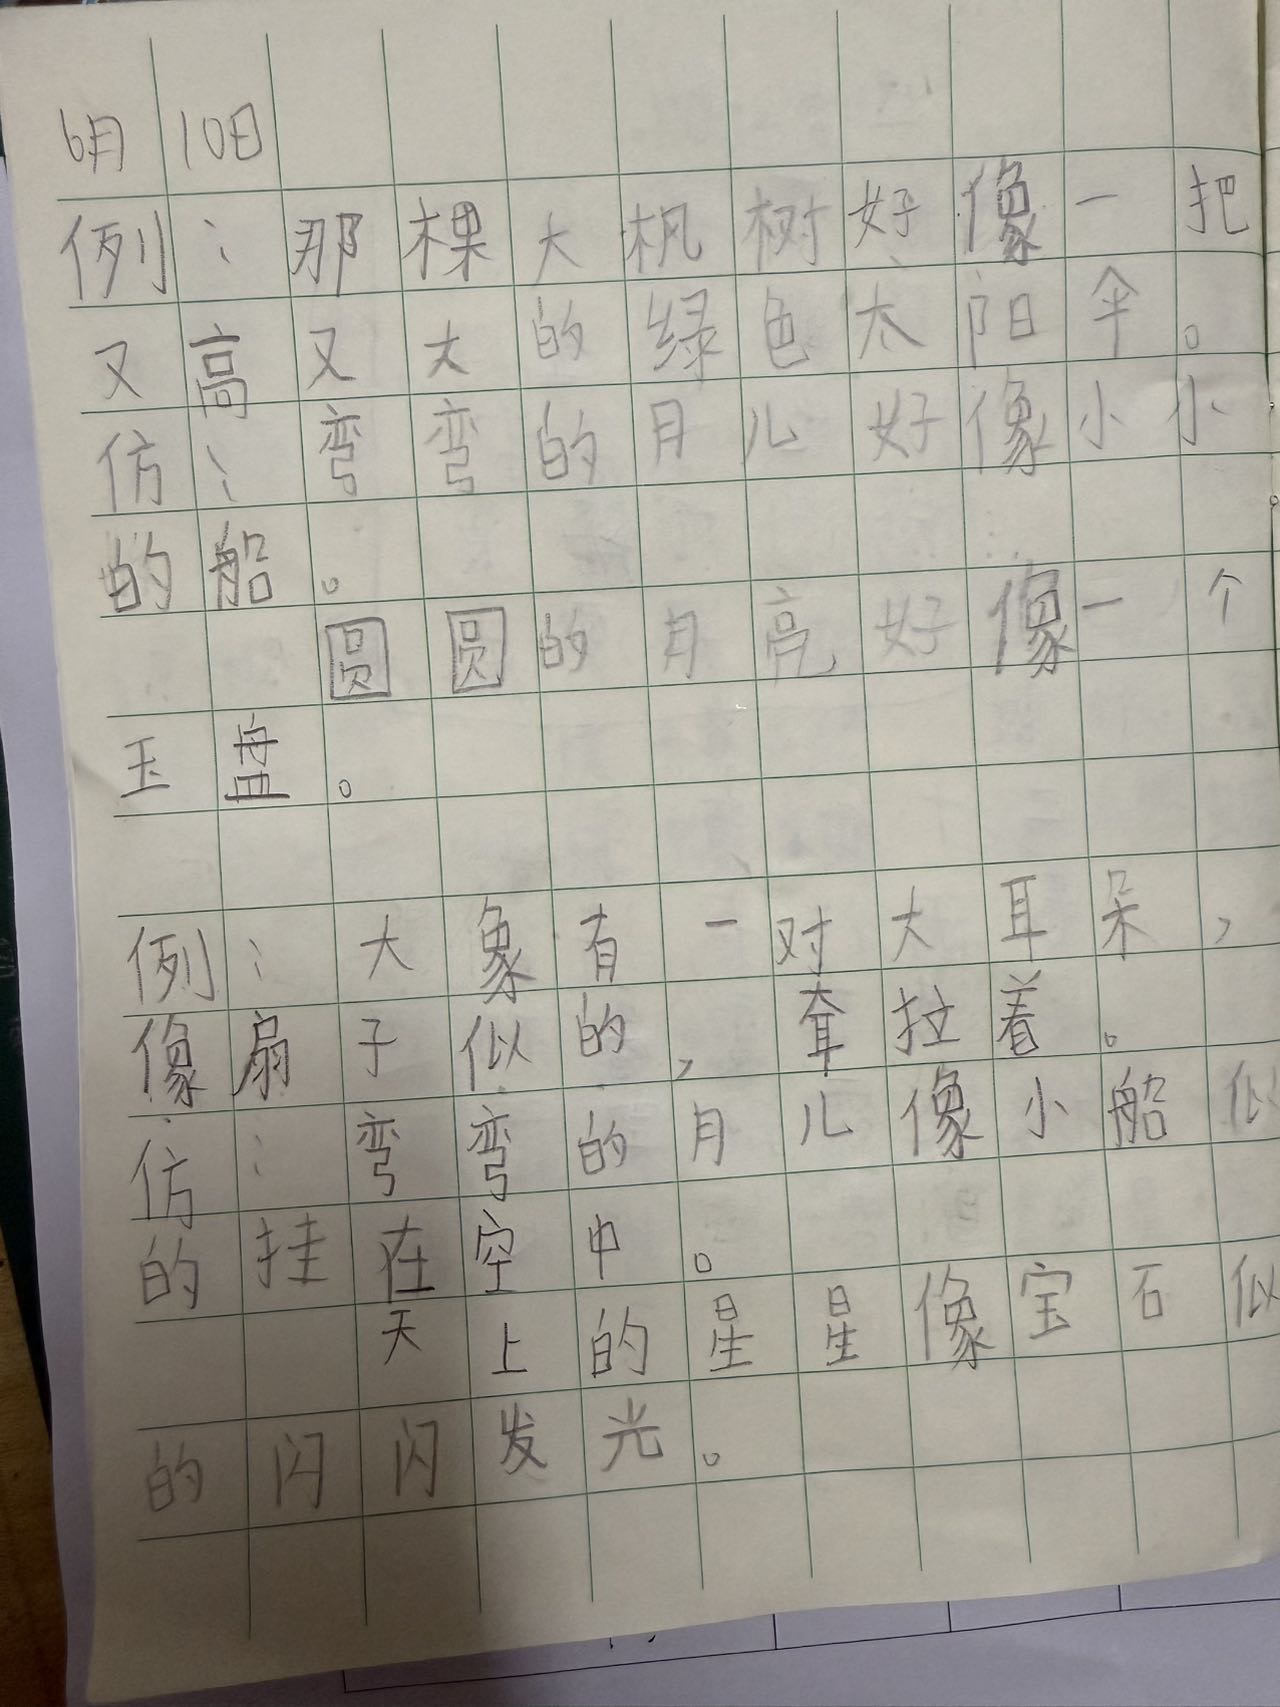 6月10日
例：那棵大枫树好像一把
又高又大的绿色太阳伞。
仿：弯弯的月儿好像小小
的船。
圆圆的月亮好像一个
玉盘。
例：大象有一对大耳朵，
像扇子似的，耷拉着。
仿：弯弯的月儿像小船似
的挂在空中。
天上的星星像宝石似
的闪闪发光。